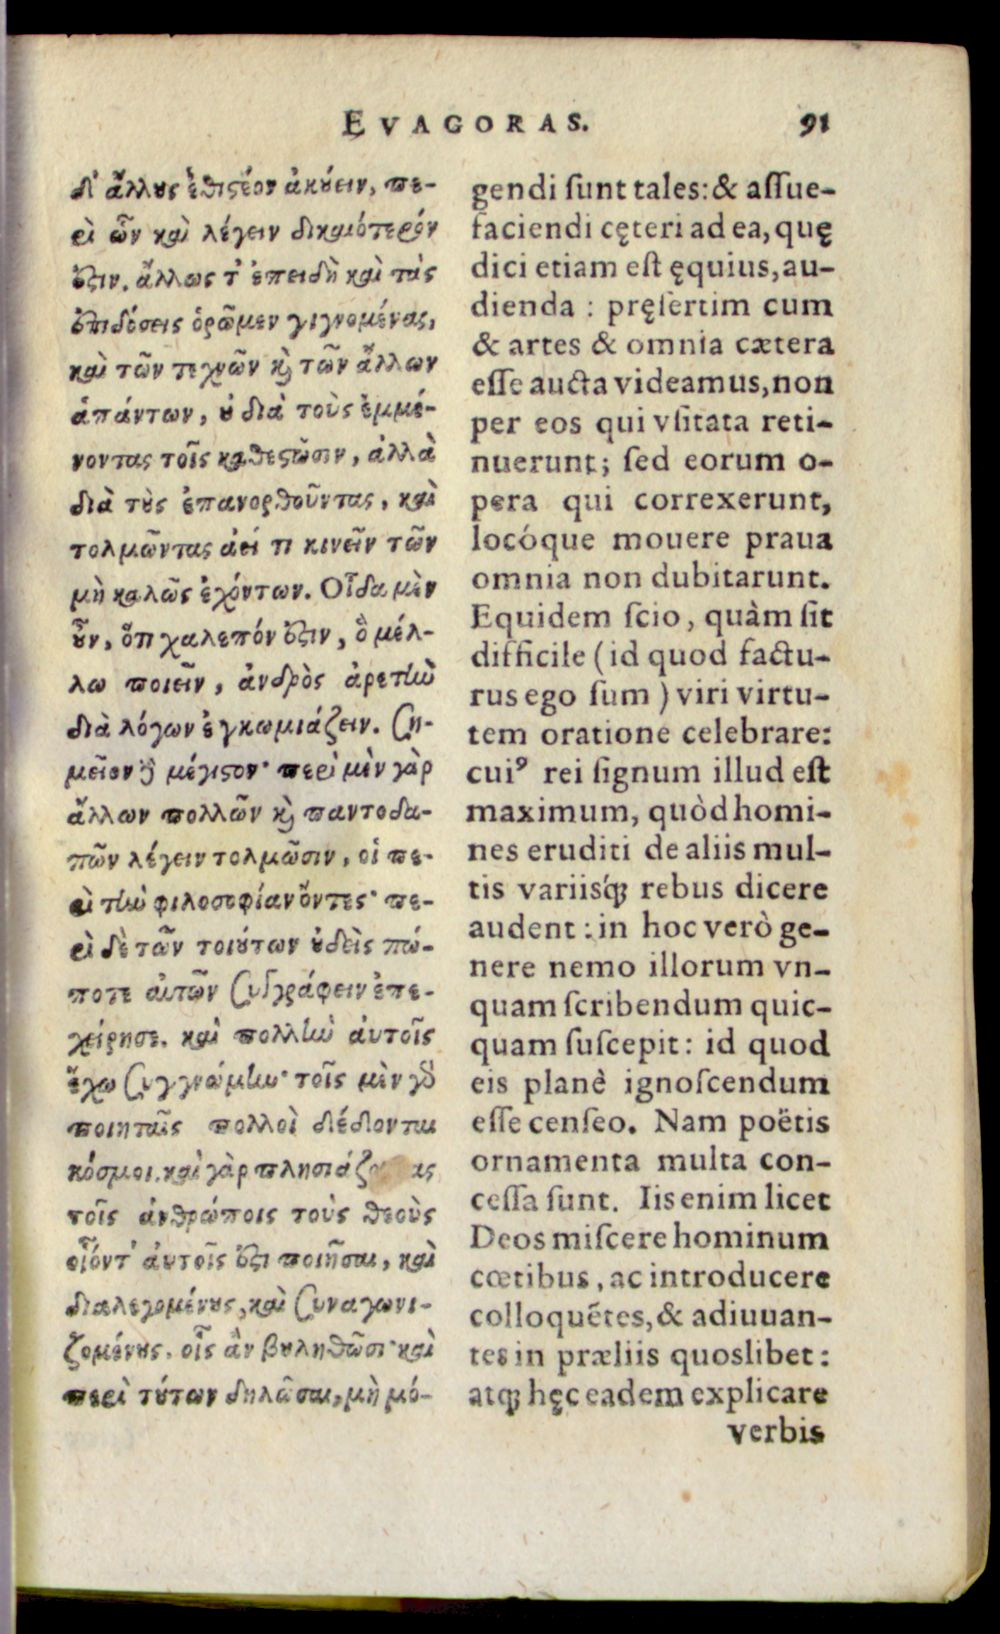 EVAGORAS. 91
δ' ἄλλους ἐθιστέον ἀκούειν, πε-
ρὶ ὧν καὶ λέγειν δικαιότερόν
ἐστιν. ἄλλως τ' ἐπειδὴ καὶ τὰς
ἐπιδόσεις ὁρῶμεν γιγνομένας,
καὶ τῶν τεχνῶν κὶ τῶν ἄλλων
ἁπάντων, οὐ διὰ τοὺς ἐμμέ-
νοντας τοῖς καθεστῶσιν, ἀλλὰ
διὰ τοὺς ἐπανορθοῦντας, καὶ
τολμῶντας ἀεί τι κινεῖν τῶν
μὴ καλῶς ἐχόντων. Οἶδα μὲν
οὖν, ὅτι χαλεπόν ἐστιν, ὃ μέλ-
λω ποιεῖν, ἀνδρὸς ἀρετὴν
διὰ λόγων ἐγκωμιάζειν. Ση-
μεῖον δὲ μέγιστον· περὶ μὲν γὰρ
ἄλλων πολλῶν κὶ παντοδα-
πῶν λέγειν τολμῶσιν, οἱ πε-
ρὶ τὴν φιλοσοφίαν ὄντες· πε-
ρὶ δὲ τῶν τοιούτων οὐδεὶς πώ-
ποτε αὐτῶν συγγράφειν ἐπε-
χείρησε. καὶ πολλὴν αὐτοῖς
ἔχω συγγνώμην· τοῖς μὲν γὰρ
ποιηταῖς πολλοὶ δέδονται
κόσμοι. καὶ γὰρ
τοῖς ἀνθρώποις τοὺς θεοὺς
οἷόντ' αὐτοῖς ἐστι ποιῆσαι, καὶ
διαλεγομένους, καὶ συναγωνι-
ζομένους, οἷς ἂν βουληθῶσι· καὶ
περὶ τούτων δηλῶσαι, μὴ μό-
gendi ſunt tales: & aſſue-
faciendi cęteri ad ea, quę
dici etiam eſt ęquius, au-
dienda : pręſertim cum
& artes & omnia cætera
eſſe aucta videamus, non
per eos qui vſitata reti-
nuerunt; ſed eorum o-
pera qui correxerunt,
locóque mouere praua
omnia non dubitarunt.
Equidem ſcio, quàm ſit
difficile (id quod factu-
rus ego ſum) viri virtu-
tem oratione celebrare:
cuiꝰ rei ſignum illud eſt
maximum, quòd homi-
nes eruditi de aliis mul-
tis variisq́ꝫ rebus dicere
audent : in hoc verò ge-
nere nemo illorum vn-
quam ſcribendum quic-
quam ſuſcepit: id quod
eis planè ignoſcendum
eſſe cenſeo. Nam poëtis
ornamenta multa con-
ceſſa ſunt. Iis enim licet
Deos miſcere hominum
cœtibus, ac introducere
colloquẽtes, & adiuuan-
tes in præliis quoslibet:
atqꝫ hęc eadem explicare
verbis